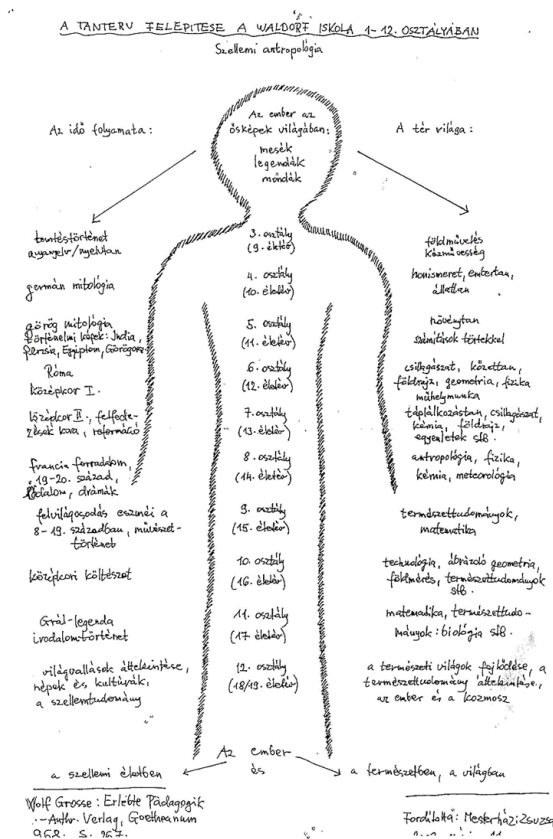 A TANTERV FELÉPÍTÉSE A WALDORF ISKOLA 1-12. OSZTÁLYÁBAN
Szellemi antropológia
Az idő folyamata:
Az ember az
ősképek világában:
mesék
legendák
mondák
A tér világa:
teremtéstörténet
anyanyelv/nyelvtan
3. osztály
(9. életév)
földművelés
kézművesség
germán mitológia
4. osztály
(10. életév)
honismeret, embertan,
állattan
görög mitológia
történelmi képek: India,
Perzsia, Egyiptom, Görögorsz.
5. osztály
(11. életév)
növénytan
számítások törtekkel
Róma
középkor I.
6. osztály
(12. életév)
csillagászat, kőzettan,
földrajz, geometria, fizika
műhelymunka
középkor II., felfede-
zések kora, reformáció
7. osztály
(13. életév)
táplálkozástan, csillagászat,
kémia, földrajz,
egyenletek stb.
francia forradalom,
19-20. század,
irodalom, drámák
8. osztály
(14. életév)
antropológia, fizika,
kémia, meteorológia
felvilágosodás eszméi a
8-19. században, művészet-
történet
9. osztály
(15. életév)
természettudományok,
matematika
középkori költészet
10. osztály
(16. életév)
technológia, ábrázoló geometria,
földmérés, természettudományok
stb.
Grál-legenda
irodalomtörténet
11. osztály
(17 életév)
matematika, természettudo-
mányok: biológia stb.
világvallások áttekintése,
népek és kultúrák,
a szellemtudomány
12. osztály
(18/19. életév)
a természeti világok fejlődése, a
természettudomány áttekintése,
az ember és a kozmosz
Az ember
a szellemi életben
és
a természetben, a világban
Wolf Grosse: Erlebte Pädagogik
Verlag, Goetheanum
Fordította: Mesterházi Zsuzsa